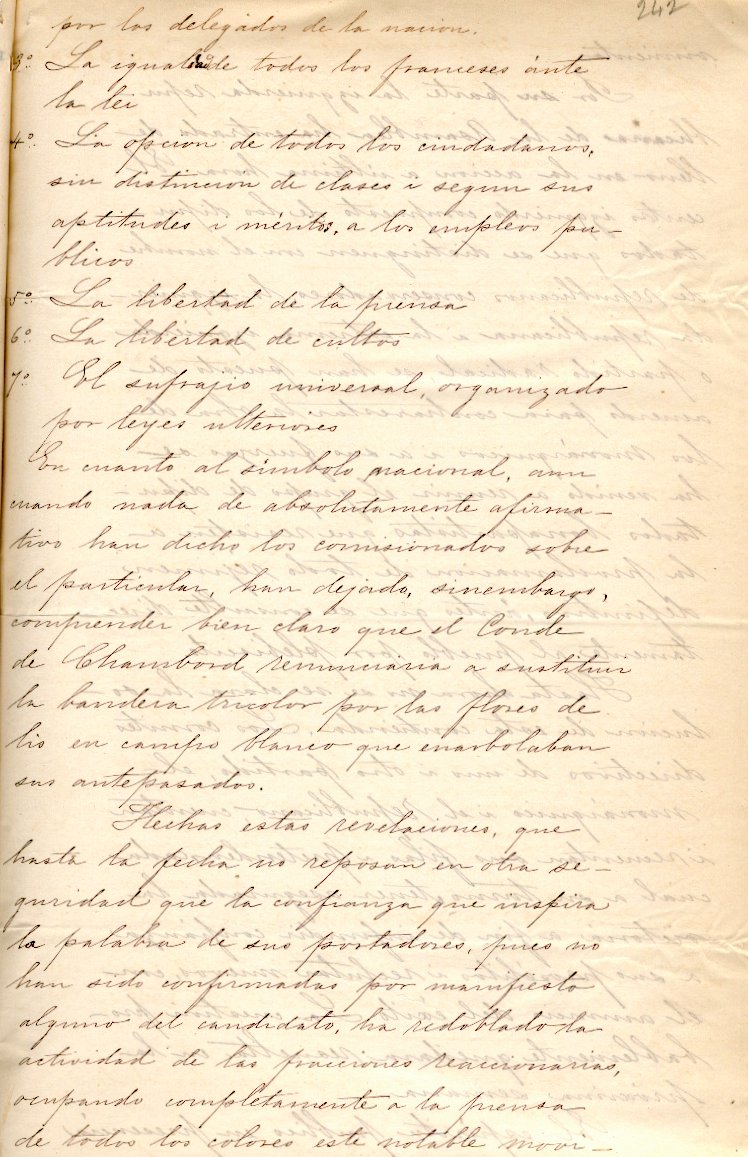 242
por los delegados de la nacion.
3º. La igualdad de todos los franceses ánte
la lei
4º. La opcion de todos los ciudadanos,
sin distincion de clases i segun sus
aptitudes i méritos, a los empleos pú-
blicos
5º. La libertad de la prensa
6º. La libertad de cultos
7º. El sufrajio universal, organizado
por leyes ulteriores
En cuanto al símbolo nacional, aun
cuando nada de absolutamente afirma-
tivo han dicho los comisionados sobre
el particular, han dejado, sinembargo,
comprender bien claro que el Conde
de Chambord renunciaria a sustituir
la bandera tricolor por las flores de
lis en campo blanco que enarbolaban
sus antepasados.
Hechas estas revelaciones, que
hasta la fecha no reposan en otra se-
guridad que la confianza que inspira
la palabra de sus portadores, pues no
han sido confirmadas por manifiesto
alguno del candidato, ha redoblado la
actividad de las fracciones reaccionarias,
ocupando completamente a la prensa
de todos los colores este notable movi-